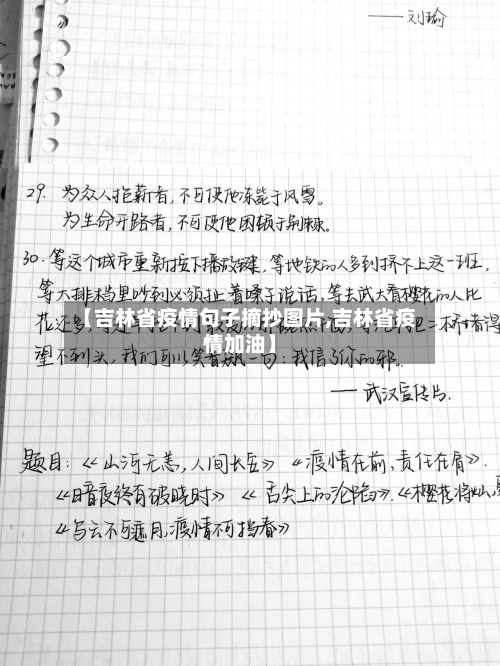 ——刘瑜
29. 为众人抱薪者，不可使他冻毙于风雪。
为生命开路者，不可使他困顿于荆棘。
30. 等这个城市重新按下播放键，等地铁的人多到挤不上这一班，
等大排档里吵到必须扯着嗓子说话，等去武大看樱花的人比
花还多，
【吉林省疫情句子摘抄图片,吉林省疫
情加油】
望不到头，我们可以笑着
我信了你的邪。
——武汉宣传片
题目：《山河无恙，人间长安》《疫情在前，责任在肩》.
《暗夜终有破晓时》《舌尖上的沦陷》.《樱花将灿，
《乌云不可遮月，疫情不可挡春》